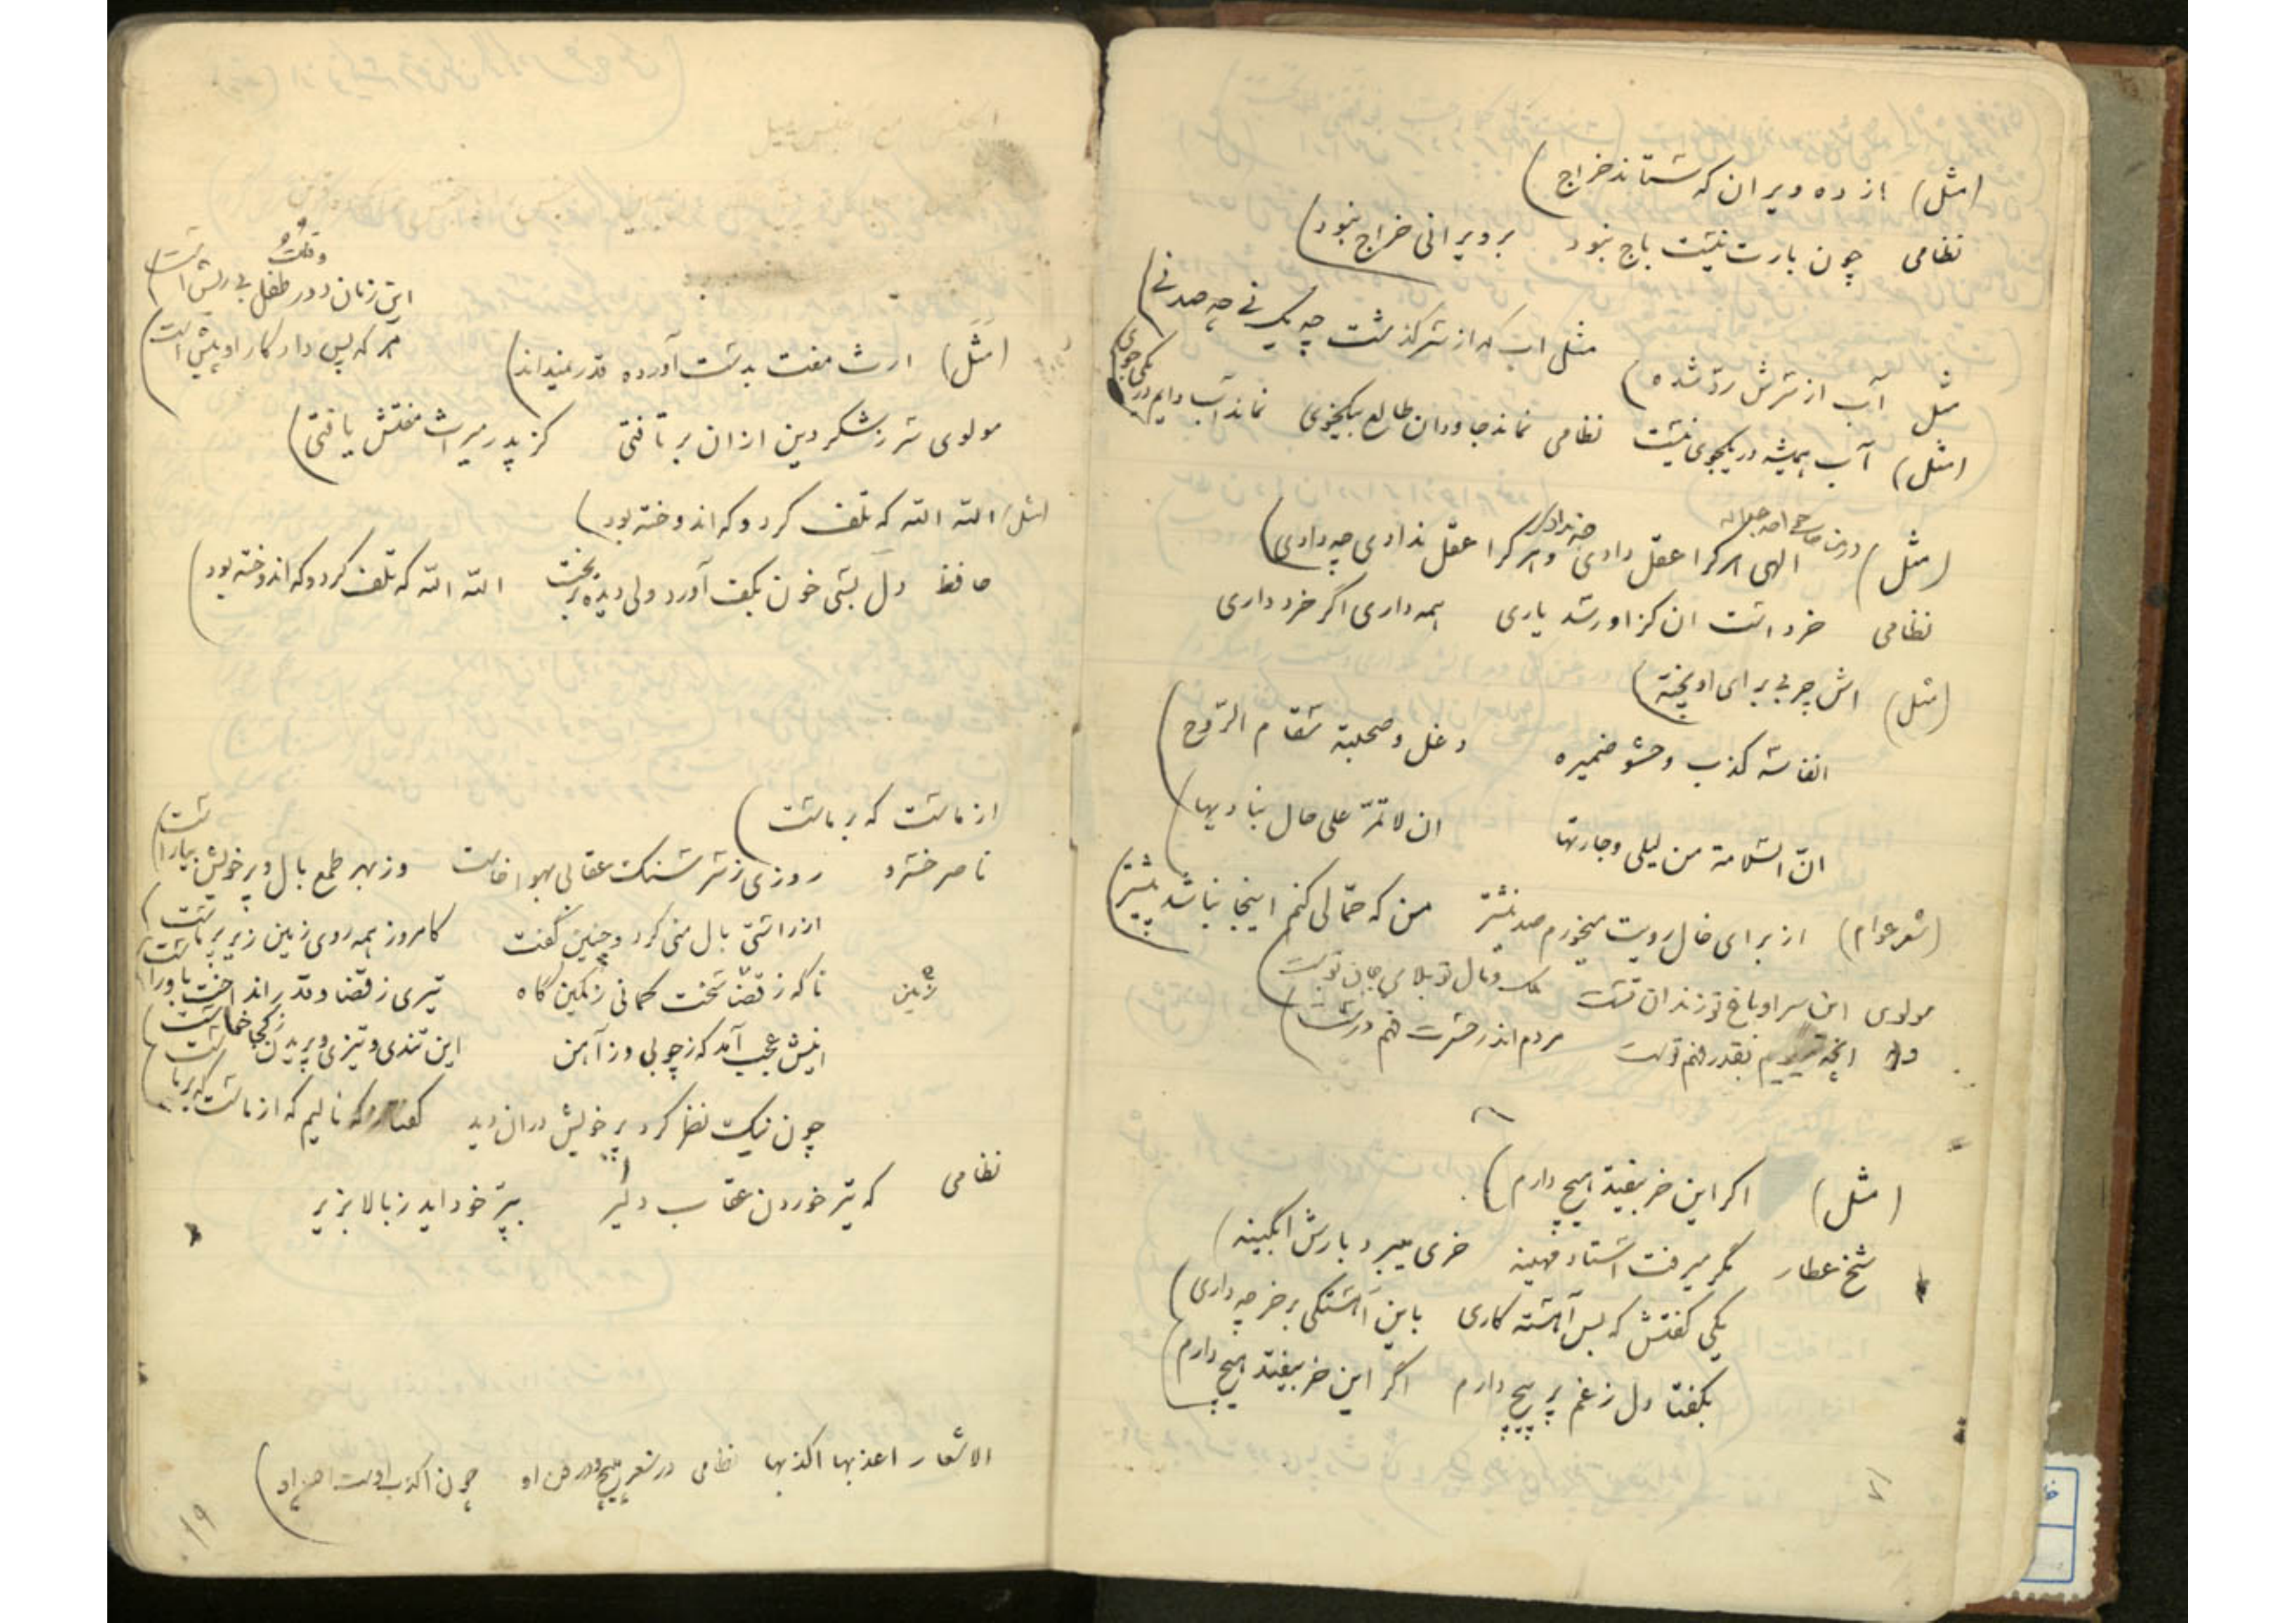 (مثل) از ده ویران که ستاند خراج)
نظامی چون بارت نیست باج نبود بر ویرانی خراج نبود)
مثل اب که از سر گذشت چه یک نی چه صد نی)
مثل آب از سرش رد شده)
(مثل) آب همیشه در یکجوی نیست نظامی نماند جاودان طالع بیکخوی نماند آب دایم در یکی جوی
(مثل) الهی هر کرا عقل دادی چه ندادی و هر کرا عقل ندادی چه دادی)
نظامی خرد است ان کز او رسد یاری همه داری اگر خرد داری
(مثل) اش چربی برای او پخته)
انفاسه کذب و حشو ضمیره دغل و صحبته سقام الروح)
ان السلامة من لیلی و جارتها ان لا تمرّ علی حال بنادیها)
(شعر عوام) از برای خال رویت میخورم صد نیشتر من که حمّالی کنم اینجا نباشد بیشتر)
مولوی این سرا و باغ تو زندان تست ملک و مال تو بلای جان تست
بقدر فهم تست مردم اندر حسرت فهم درست)
(مثل) اکر این خر بیفتد هیچ دارم)
شیخ عطار مگر میرفت استاد مهینه خری میبرد بارش ابگینه)
یکی گفتش که بس آهسته کاری باین آهستگی بر خر چه داری)
بگفتا دل ز غم پر پیچ دارم اگر این خر بیفتد هیچ دارم)
این زمان دور طفل بی ریش است
هر که پس داد کار او پیش است
(مثل) ارث مفت بدست آورده قدر نمیداند)
مولوی سر ز شکر دین ازان بر تافتی کز پدر میراث مفتش یافتی)
(مثل) الله الله که تلف کرد و که اندوخته بود)
حافظ دل بسی خون بکف آورد ولی دیده بریخت الله الله که تلف کرد و که اندوخته بود)
از ماست که بر ماست)
ناصر خسرو روزی ز سر سنک عقابی بهوا خاست وز بهر طمع بال و پر خویش بیاراست
از راستی بال منی کرد و چنین گفت کامروز همه روی زمین زیر پر ماست
ناکه ز قضا سخت کمانی ز کمین گاه تیری ز قضا و قدر انداخت باو راست
اینش عجب آمد که ز چوبی و ز آهن این تندی و تیزی و پریدن ز کجا خاست
چون نیک نظر کرد پر خویش دران دید گفتا ز که نالیم که از ماست که بر ماست
نظامی که تیر خوردن عقاب دلیر بپرّ خود اید ز بالا بزیر
الاشعار اعذبها اکذبها نظامی در شعر مپیچ و در فن او چون اکذب اوست احسن او)
۱۹